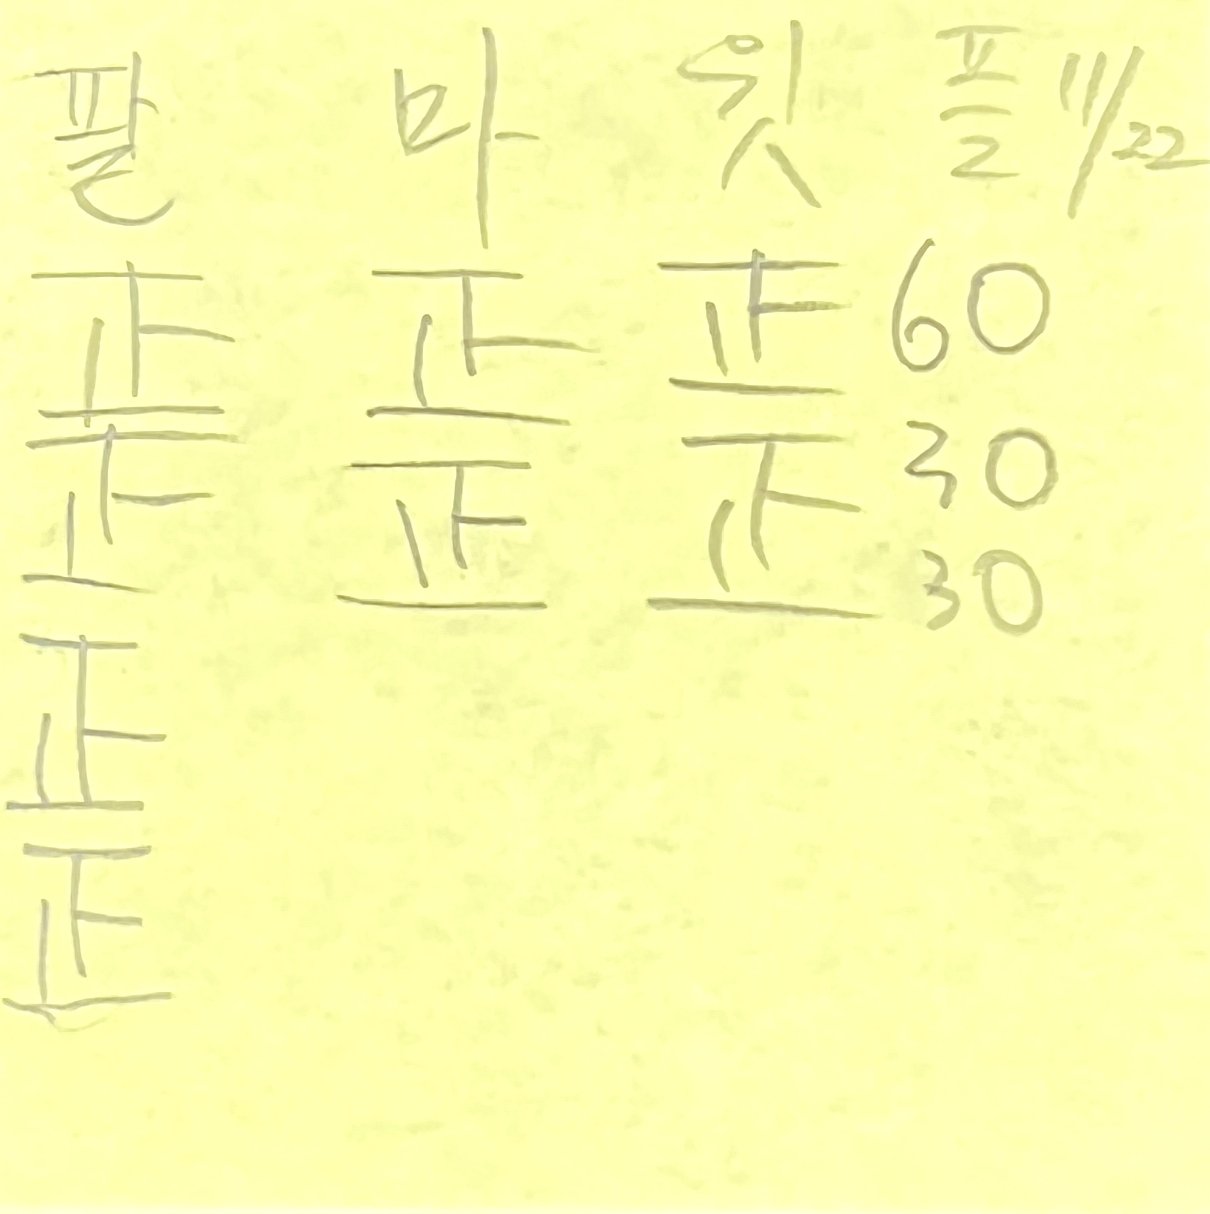 팔 마 윗 플 11/22
正 正 正 60
正 正 正 30
正 30
正